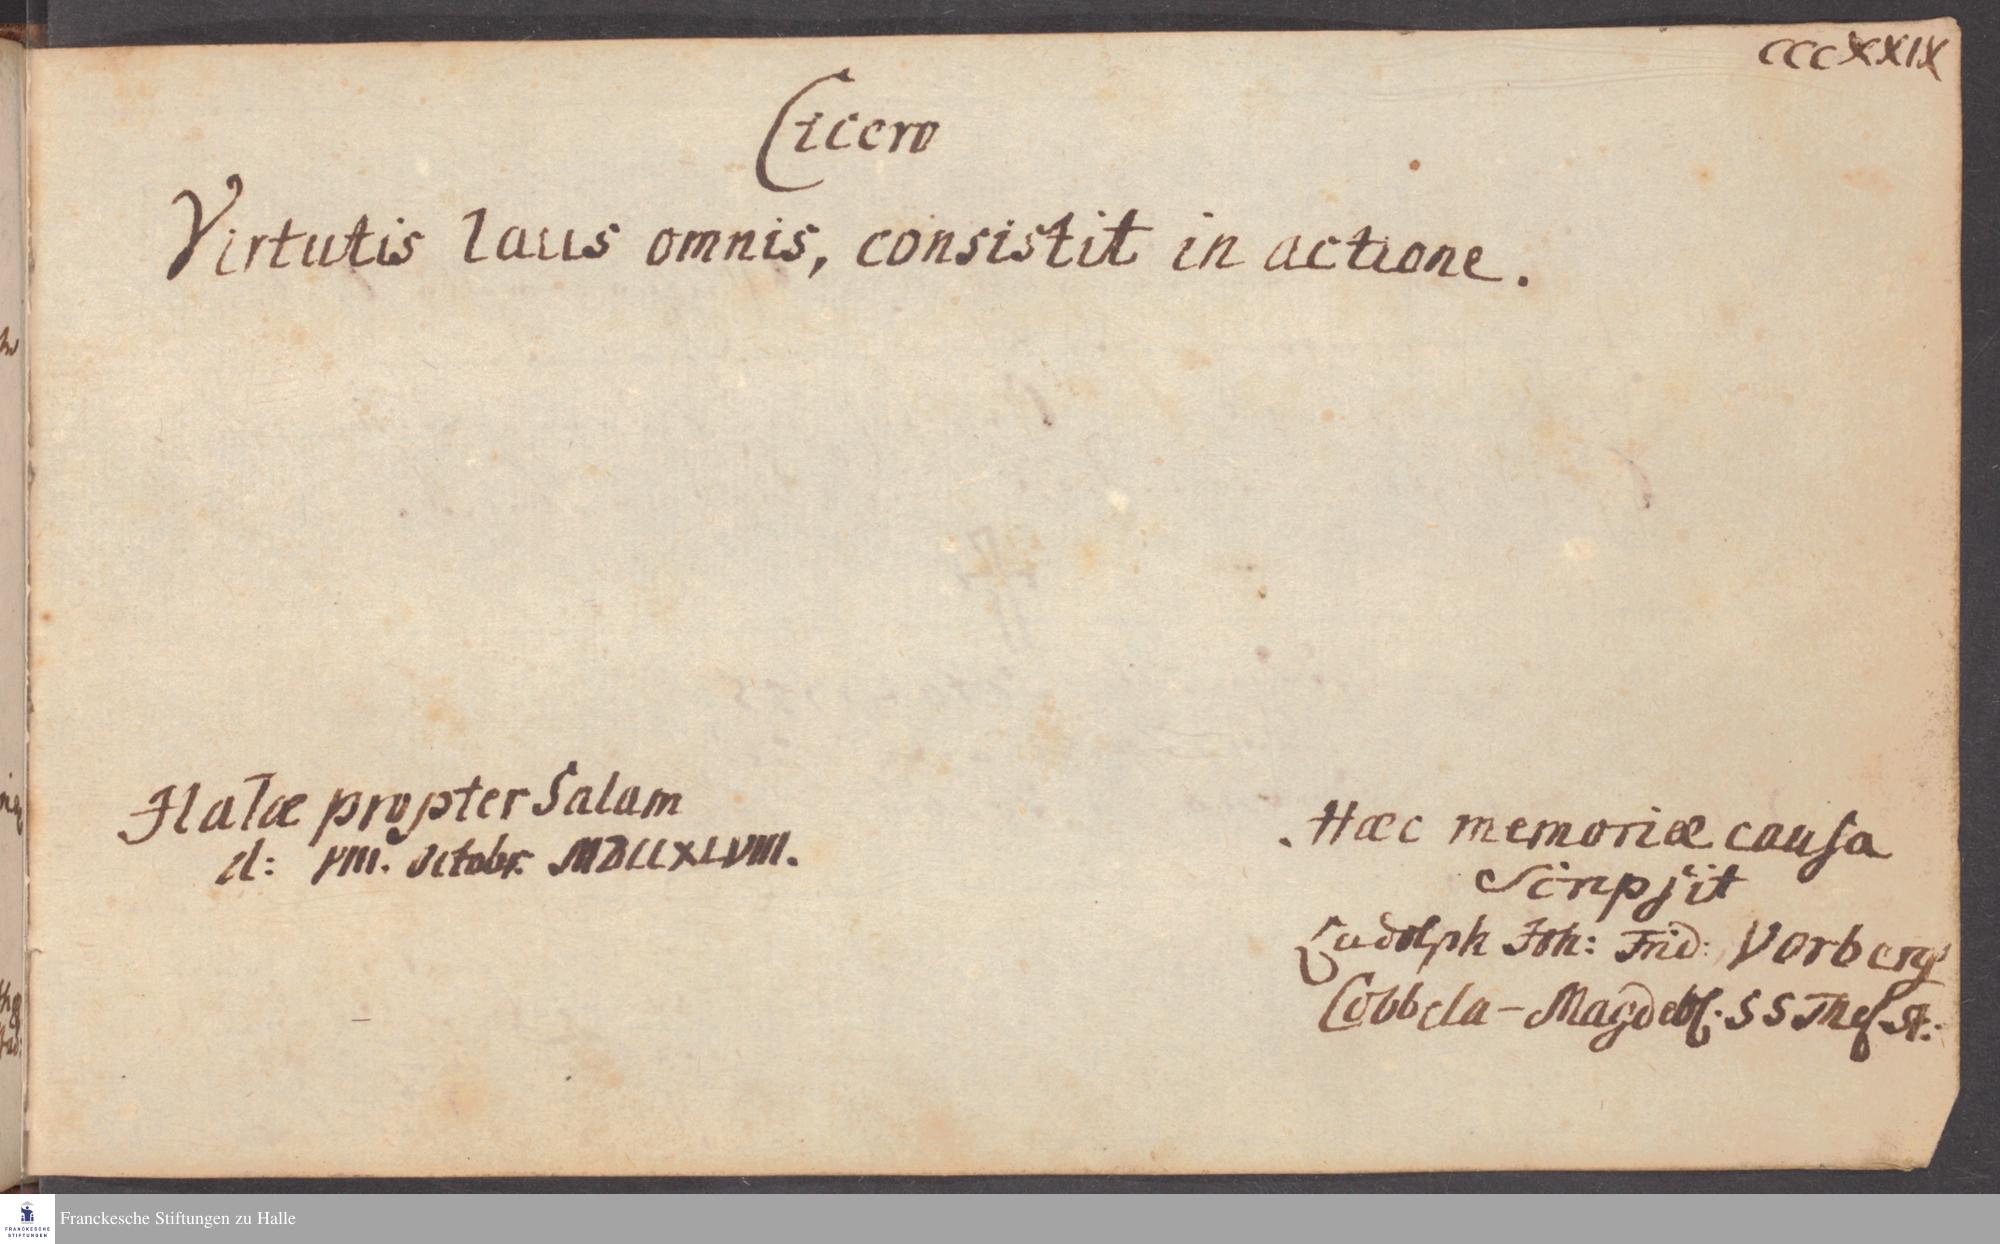 CCCXXIX
Cicero
Virtutis laus omnis, consistit in actione.
Halæ propter Salam
d: VIII. Octobr. MDCCXLVIII.
Hæc memoriæ causa
scripsit
Ludolph Joh: Frid: Vorberg
Cobbela-Magdeb. SS St:
FRANCKESCHE
STIFTUNGEN
Franckesche Stiftungen zu Halle